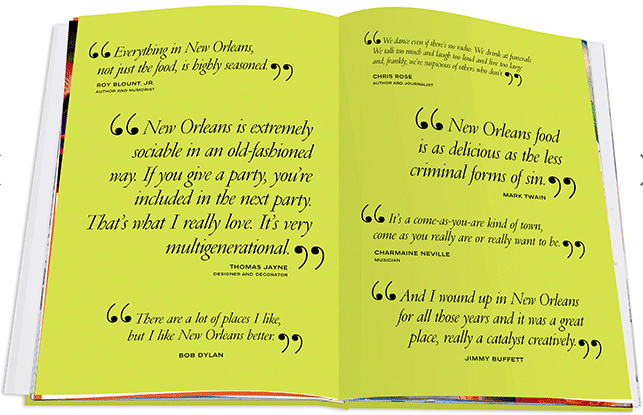 “Everything in New Orleans,
not just the food, is highly seasoned.”
ROY BLOUNT, JR.
AUTHOR AND HUMORIST
“New Orleans is extremely
sociable in an old-fashioned
way. If you give a party, you’re
included in the next party.
That’s what I really love. It’s very
multigenerational.”
THOMAS JAYNE
DESIGNER AND DECORATOR
“There are a lot of places I like,
but I like New Orleans better.”
BOB DYLAN
“We dance even if there’s no radio. We drink at funerals.
We talk too much and laugh too loud and live too large
and, frankly, we’re suspicious of others who don’t.”
CHRIS ROSE
AUTHOR AND JOURNALIST
“New Orleans food
is as delicious as the less
criminal forms of sin.”
MARK TWAIN
“It’s a come-as-you-are kind of town,
come as you really are or really want to be.”
CHARMAINE NEVILLE
MUSICIAN
“And I wound up in New Orleans
for all those years and it was a great
place, really a catalyst creatively.”
JIMMY BUFFETT